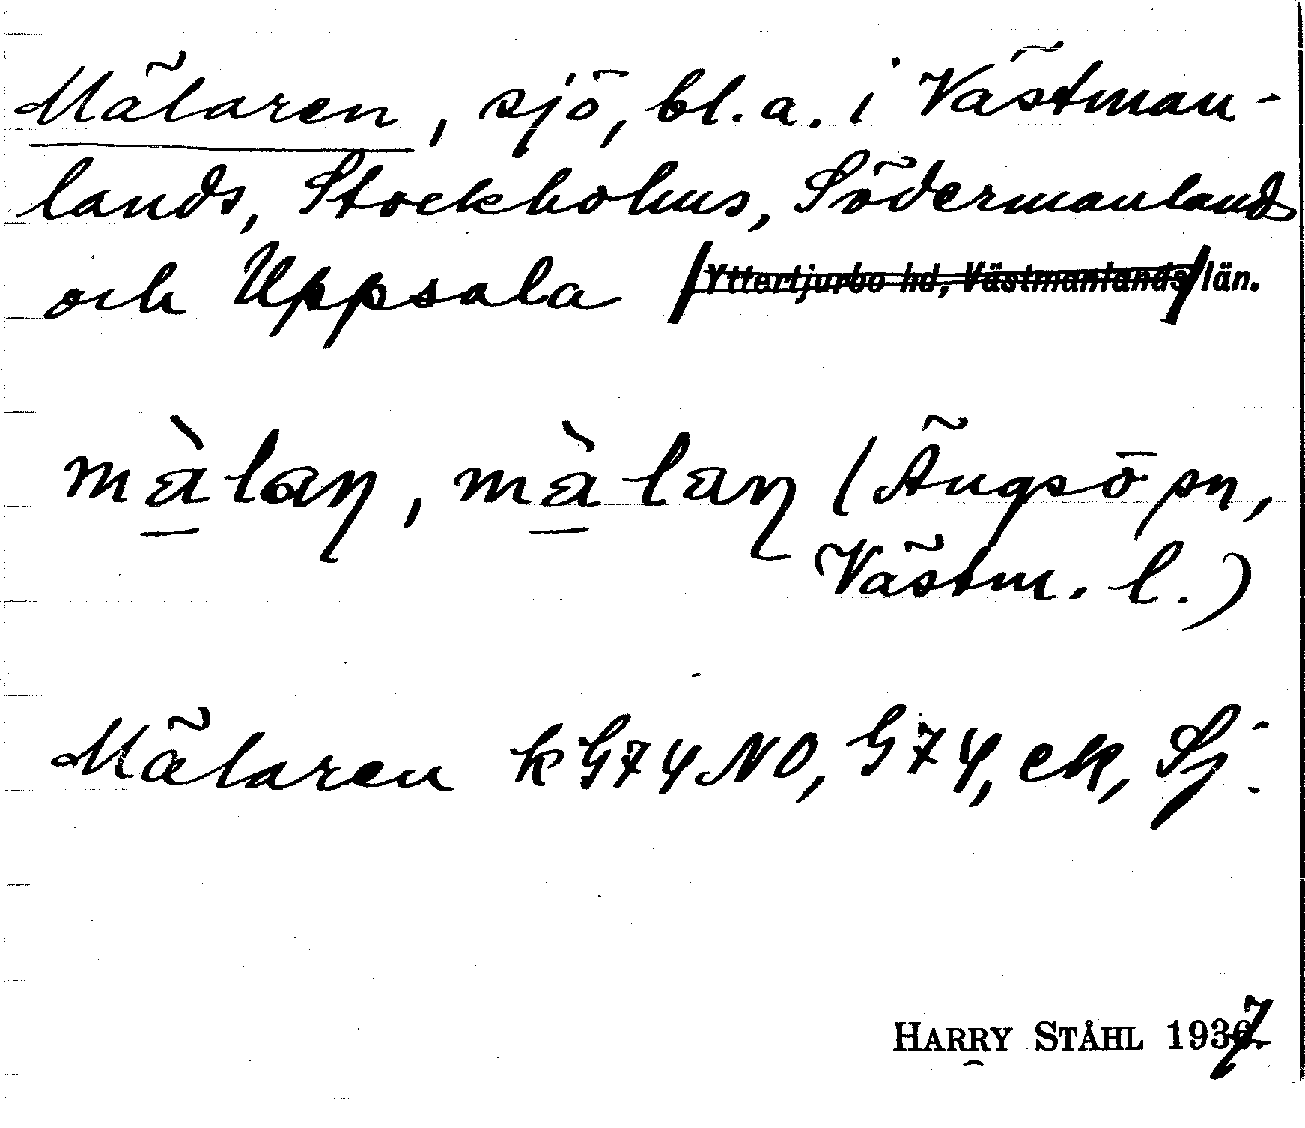 Mälaren, sjö, bl.a. i Västman-
lands, Stockholms, Södermanlands
och Uppsala [Yttertjurbo hd, Västmanlands] län.
mà̱laŋ, mà̱laŋ (Ängsö sn,
Västm. l.)
Mälaren k G74NO, G74, ek, Sj.
HARRY STÅHL 1937.